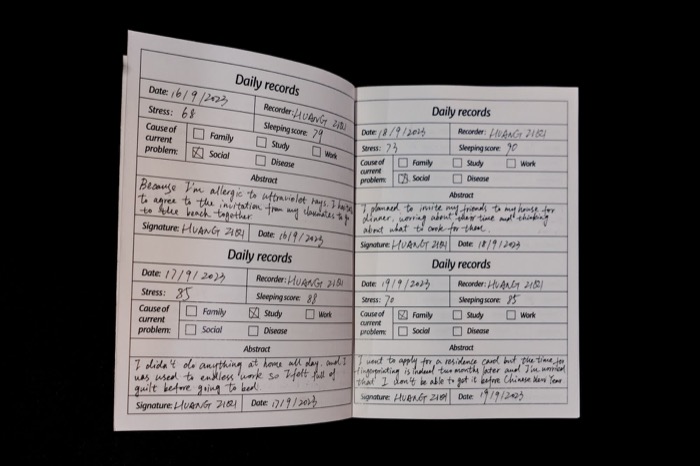 Daily records
Date: 16/9/2023
Recorder: HUANG ZIQI
Stress: 68
Sleeping score: 79
Cause of current problem:
Family
Study
Work
Social
Disease
Abstract
Because I'm allergic to ultraviolet rays. I
to agree to the invitation from my classmates to go
to the beach together
Signature: HUANG ZIQI
Date: 16/9/2023
Daily records
Date: 17/9/2023
Recorder: HUANG ZIQI
Stress: 85
Sleeping score: 88
Cause of current problem:
Family
Study
Work
Social
Disease
Abstract
I didn't do anything at home all day, and I
was used to endless work so I felt full of
guilt before going to bed.
Signature: HUANG ZIQI
Date: 17/9/2023
Daily records
Date: 18/9/2023
Recorder: HUANG ZIQI
Stress: 73
Sleeping score: 90
Cause of current problem:
Family
Study
Work
Social
Disease
Abstract
I planned to invite my friends to my house for
dinner, worring about their time and thinking
about what to cook for them.
Signature: HUANG ZIQI
Date: 18/9/2023
Daily records
Date: 19/9/2023
Recorder: HUANG ZIQI
Stress: 70
Sleeping score: 85
Cause of current problem:
Family
Study
Work
Social
Disease
Abstract
I want to apply for a residence card but the time for
fingerprinting is indeed two months later and I'm worried
that I don't be able to get it before Chinese New Year
Signature: HUANG ZIQI
Date: 19/9/2023